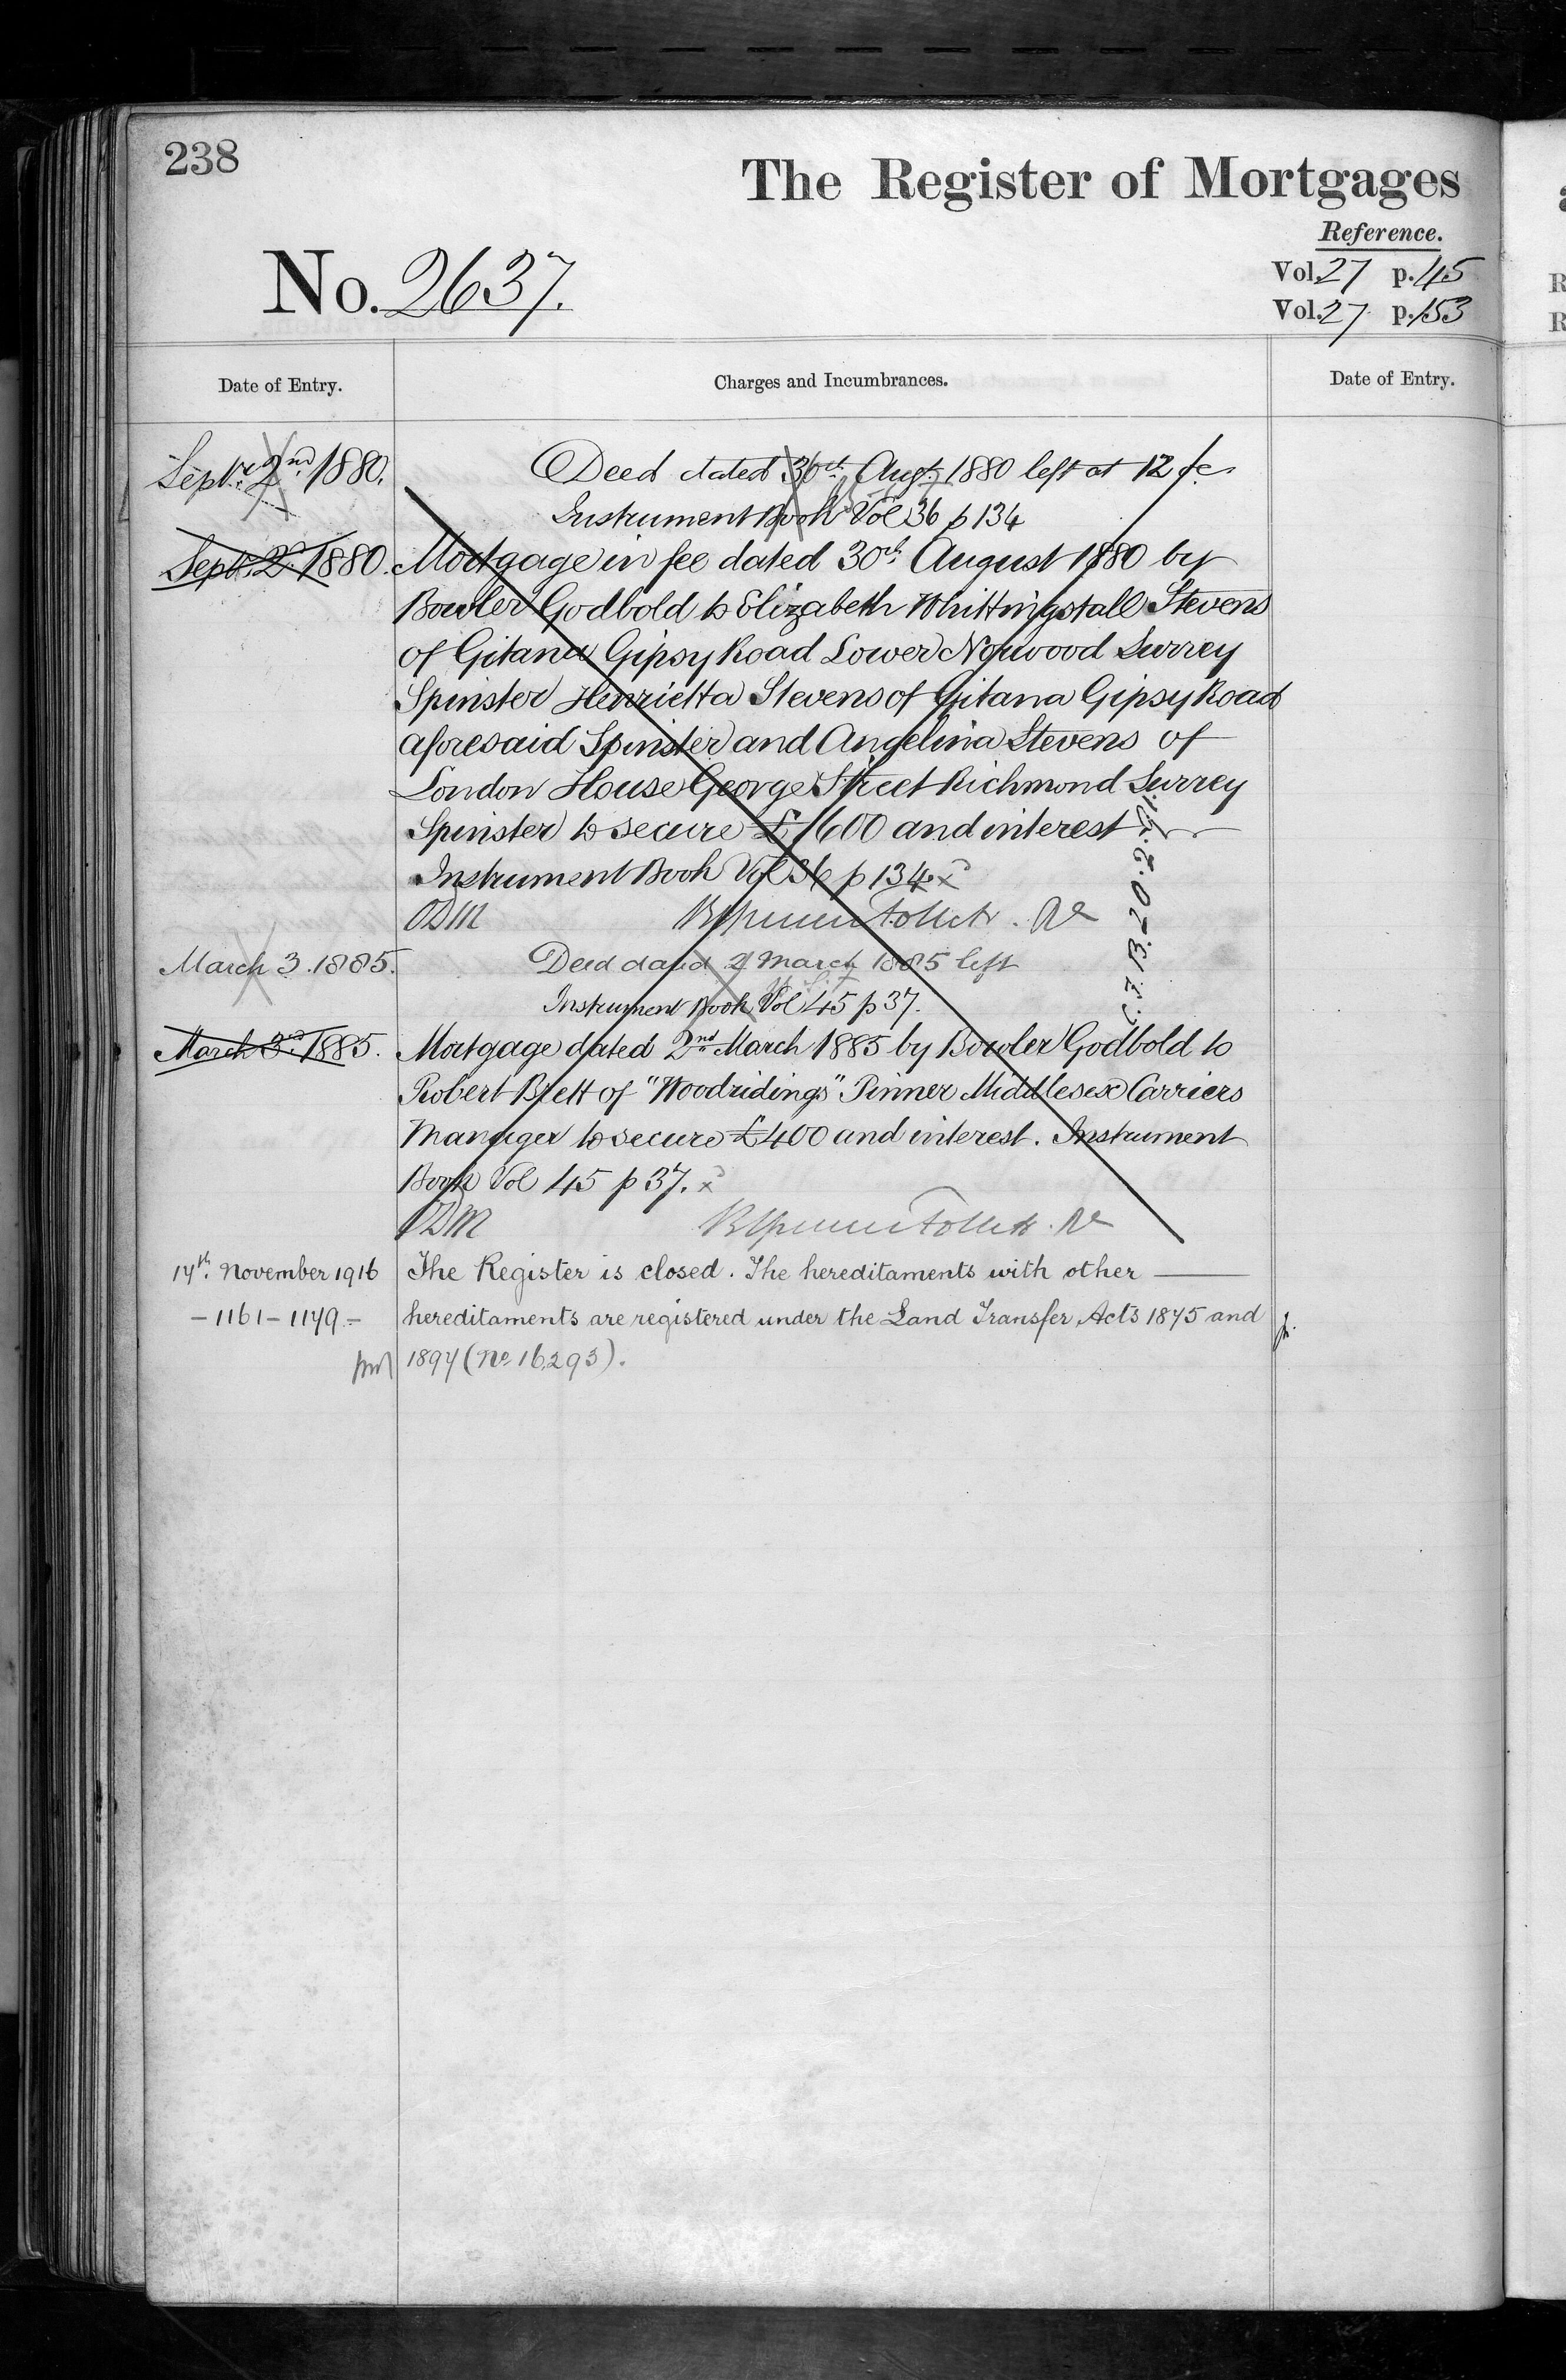 238
The Register of Mortgages
Reference.
No. 2637.
Vol. 27 p. 45
Vol. 27 p. 153
Date of Entry.
Charges and Incumbrances.
Date of Entry.
Septr. 2nd 1880.
Deed dated 30th Augt. 1880 left at 12
Instrument Book Vol 36 p 134
Sept. 2d. 1880.
Mortgage in fee dated 30th August 1880 by
Bowler Godbold to Elizabeth Whittingstall Stevens
of Gitana Gipsy Road Lower Norwood Surrey
Spinster Henrietta Stevens of Gitana Gipsy Road
aforesaid Spinster and Angelina Stevens of
London House George Street Richmond Surrey
Spinster to secure £1600 and interest
Instrument Book Vol 36 p 134
March 3. 1885.
Deed dated 2 March 1885 left
Instrument Book Vol 45 p 37.
March 3d. 1885.
Mortgage dated 2nd March 1885 by Bowler Godbold to
Robert Brett of "Woodridings" Pinner Middlesex Carriers
Manager to secure £400 and interest. Instrument
Book Vol 45 p 37.
14th. November 1916
The Register is closed. The hereditaments with other
- 1161 - 1149 -
hereditaments are registered under the Land Transfer Acts 1875 and
1897 (No. 16,293).